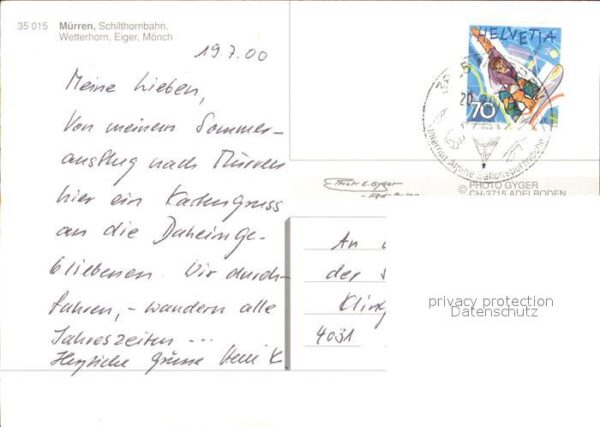 35 015 Mürren, Schilthornbahn,
Wetterhorn, Eiger, Mönch
19.7.00
Meine Lieben,
Von meinem Sommer-
ausflug nach Mürren
hier ein Kartengruss
an die Daheimge-
bliebenen. Wir durch-
fahren, - wandern alle
Jahreszeiten ...
Herzliche Grüsse
HELVETIA
70
20
Internat. alpine Ballonsportwoche
© PHOTO GYGER
CH-3715 ADELBODEN
Photo Gyger
An
der
Kling
4031
privacy protection
Datenschutz